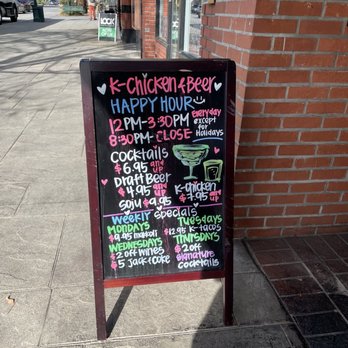 LOCK
K-Chicken & Beer
HAPPY HOUR
12PM-3:30PM
8:30PM-CLOSE
everyday
except
for
Holidays
COCKTAILS
$6.95 and up
Draft Beer
$4.95 and up
Soju $9.95
K-chicken
$7.95 and up
Weekly Specials
MONDAYS
$9.95 makkoli
WEDNESDAYS
$2 off wines
$5 Jack & Coke
Tuesdays
$12.95 K-tacos
THURSDAYS
$2 off
signature
cocktails